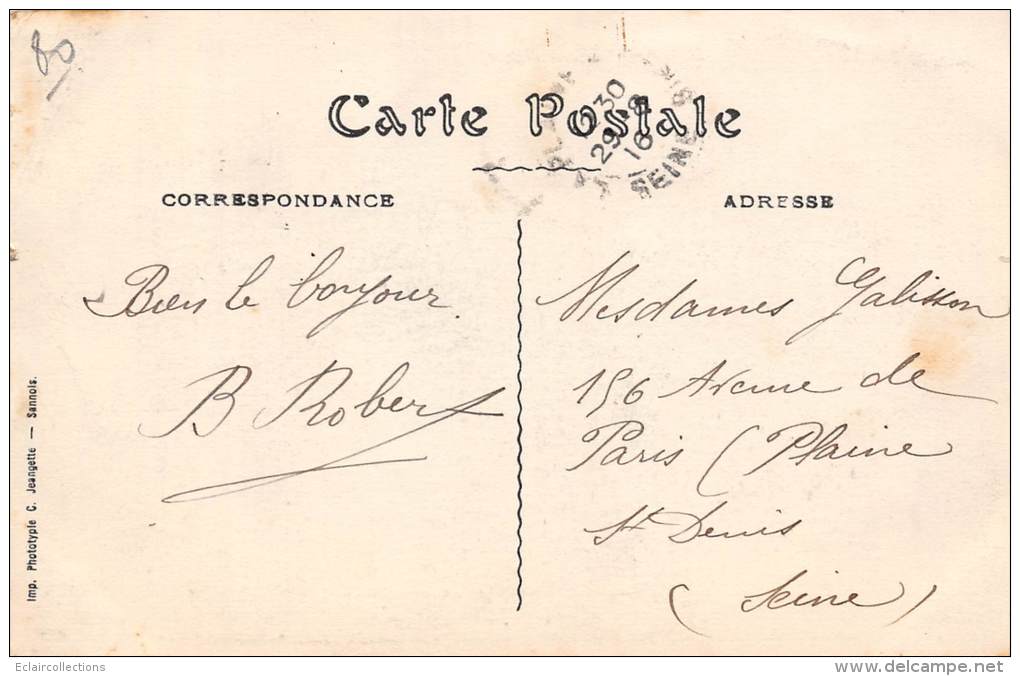 80
Carte Postale
30
29-8
16
SEINE
CORRESPONDANCE
Bien le bonjour
B Robert
ADRESSE
Mesdames Galisson
156 Avenue de
Paris (Plaine
St Denis
(Seine)
Imp. Phototypie C. Jeangette — Sannois.
Eclaircollections
www.delcampe.net